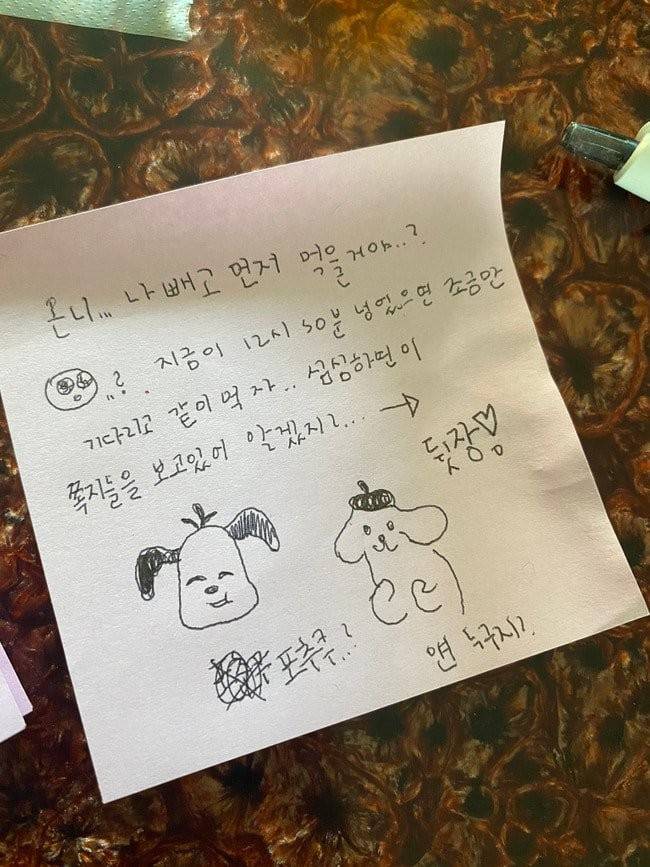 온니... 나 빼고 먼저 먹을거야..?
..?. 지금이 12시 50분 넘었으면 조금만
기다리고 같이 먹자.. 심심하면 이
쪽지들을 보고있어 알겠지?... →
뒷장♡
포츄쿠..?
앤 누구지?